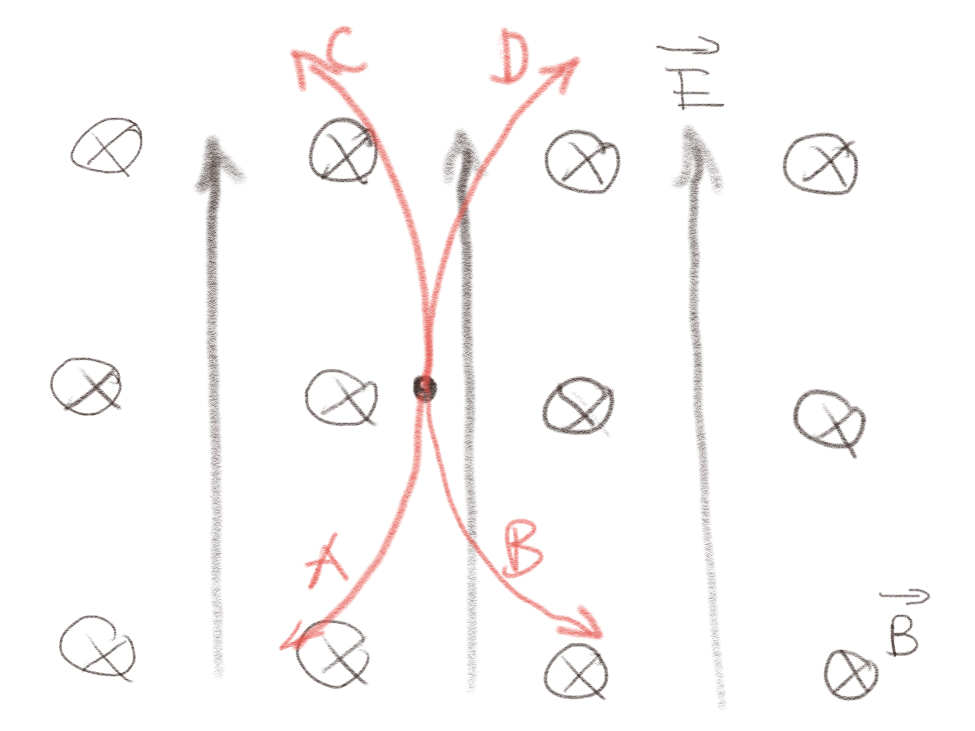 C D E
A B
B